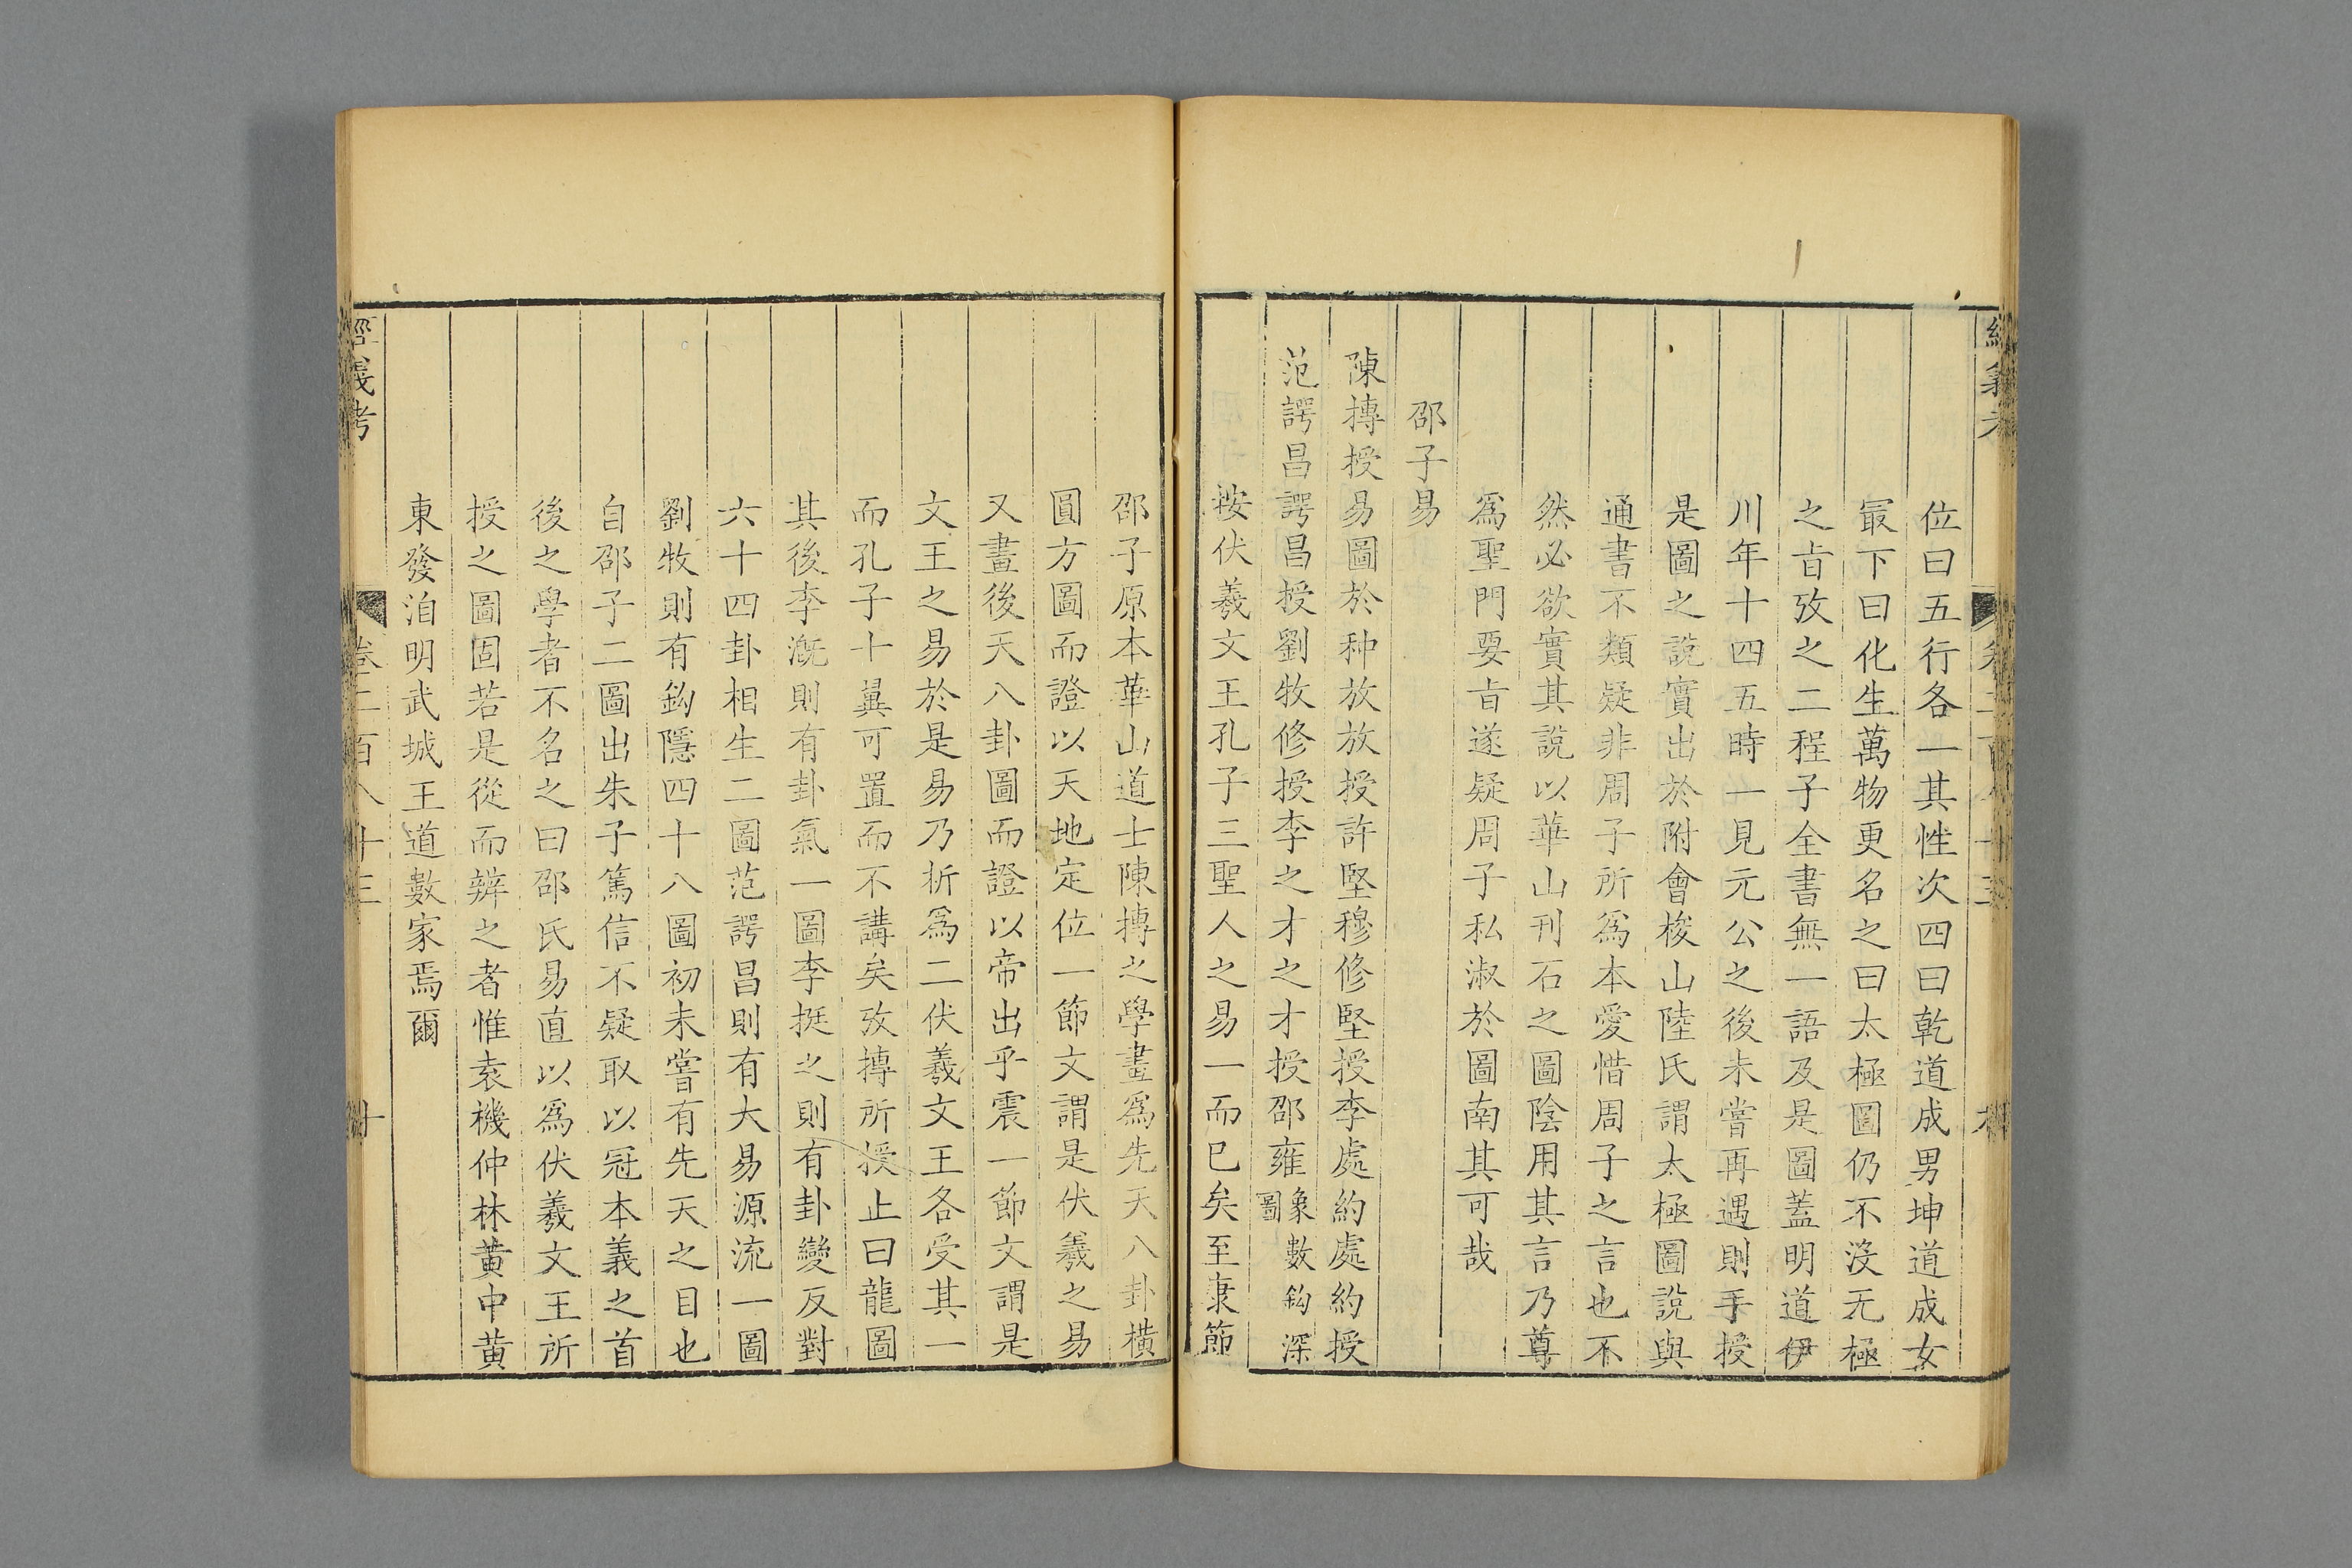 位曰五行各一其性次四曰乾道成男坤道成女
最下曰化生萬物更名之曰太極圖仍不沒无極
之㫖攷之二程子全書無一語及是圖葢明道伊
川年十四五時一見元公之後未嘗再遇則手授
是圖之說實出於附會梭山陸氏謂太極圖說與
通書不類疑非周子所爲本愛惜周子之言也不
然必欲實其說以華山刊石之圖陰用其言乃尊
爲聖門要㫖遂疑周子私淑於圖南其可哉
邵子易
陳摶授易圖於种放放授許堅穆修堅授李處約處約授
范諤昌諤昌授劉牧修授李之才之才授邵雍象數鈎深圖
按伏羲文王孔子三聖人之易一而已矣至康節
邵子原本華山道士陳摶之學畫爲先天八卦橫
圓方圖而證以天地定位一節文謂是伏羲之易
又畫後天八卦圖而證以帝出乎震一節文謂是
文王之易於是易乃析爲二伏羲文王各受其一
而孔子十翼可置而不講矣攷摶所授止曰龍圖
其後李漑則有卦氣一圖李挺之則有卦變反對
六十四卦相生二圖范諤昌則有大易源流一圖
劉牧則有鈎隱四十八圖初未嘗有先天之目也
自邵子二圖出朱子篤信不疑取以冠本義之首
後之學者不名之曰邵氏易直以爲伏羲文王所
授之圖固若是從而辨之者惟袁機仲林黃中黃
東發洎明武城王道數家焉爾
經義考
卷二百八十三
十